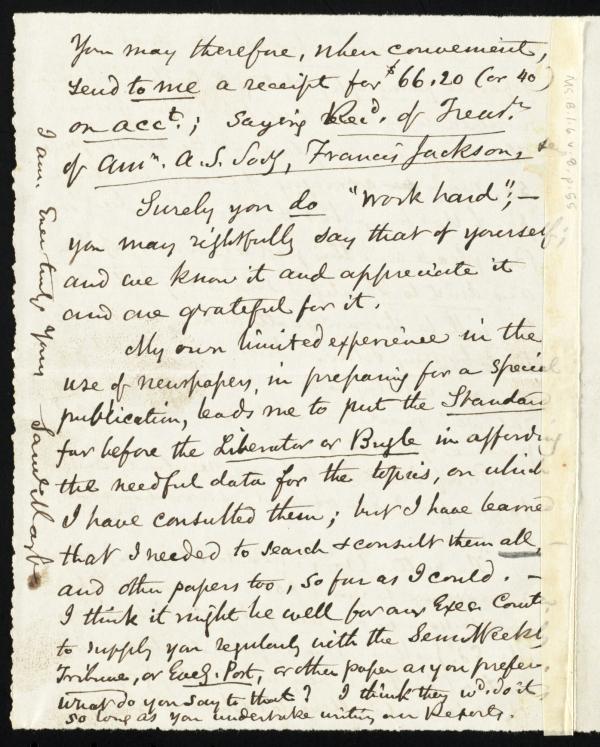 You may therefore, when convenient,
send to me a receipt for $66.20 (or 40)
on acct.; saying Rec'd. of Treasr.
of Amn. A. S. Socy, Francis Jackson, &c
Surely you do "work hard";—
you may rightfully say that of yourself;
and we know it and appreciate it
and are grateful for it.
My own limited experience in the
use of newspapers, in preparing for a special
publication, leads me to put the Standard
far before the Liberator or Bugle in affording
the needful data for the topics, on which
I have consulted them; but I have learned
that I needed to search & consult them all,
and other papers too, so far as I could. —
I think it might be well for our Exec. Comtee
to supply you regularly with the Semi Weekly
Tribune, or Eveg. Post, or other paper as you prefer.
What do you say to that? I think they wd. do it,
so long as you undertake writing our Reports.
I am Ever truly Yours
Saml. May Jr.